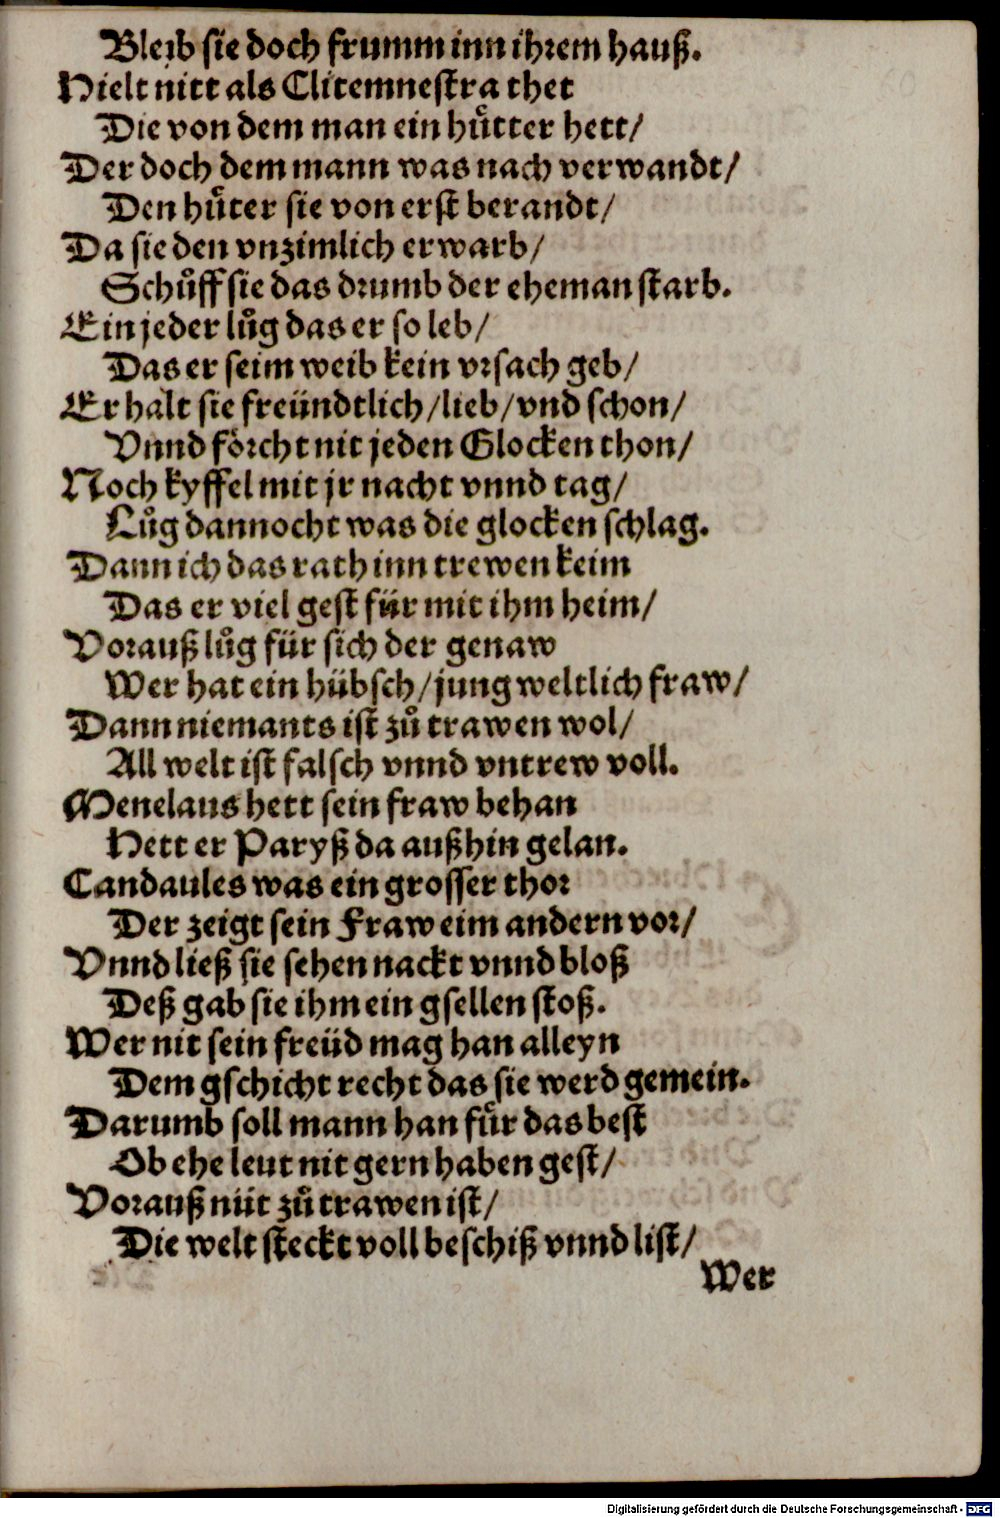 Bleib sie doch frumm inn ihrem hauß.
Hielt nitt als Clitemnestra thet
Die von dem man ein huͤtter hett/
Der doch dem mann was nach verwandt/
Den huͤter sie von erst berandt/
Da sie den vnzimlich erwarb/
Schuͦff sie das drumb der eheman starb.
Ein jeder luͦg das er so leb/
Das er seim weib kein vrsach geb/
Er halt sie freündtlich/lieb/vnd schon/
Vnnd foͤrcht nit jeden Glocken thon/
Noch kyffel mit jr nacht vnnd tag/
Luͦg dannocht was die glocken schlag.
Dann ich das rath inn trewen keim
Das er viel gest für mit ihm heim/
Vorauß luͦg für sich der genaw
Wer hat ein hübsch/jung weltlich fraw/
Dann niemants ist zuͦ trawen wol/
All welt ist falsch vnnd vntrew voll.
Menelaus hett sein fraw behan
Hett er Paryß da außhin gelan.
Candaules was ein grosser thor
Der zeigt sein Fraw eim andern vor/
Vnnd ließ sie sehen nackt vnnd bloß
Deß gab sie ihm ein gsellen stoß.
Wer nit sein freüd mag han alleyn
Dem gschicht recht das sie werd gemein.
Darumb soll mann han fuͤr das best
Ob ehe leut nit gern haben gest/
Vorauß nüt zuͦ trawen ist/
Die welt steckt voll beschiß vnnd list/
Wer
Digitalisierung gefördert durch die Deutsche Forschungsgemeinschaft - DFG